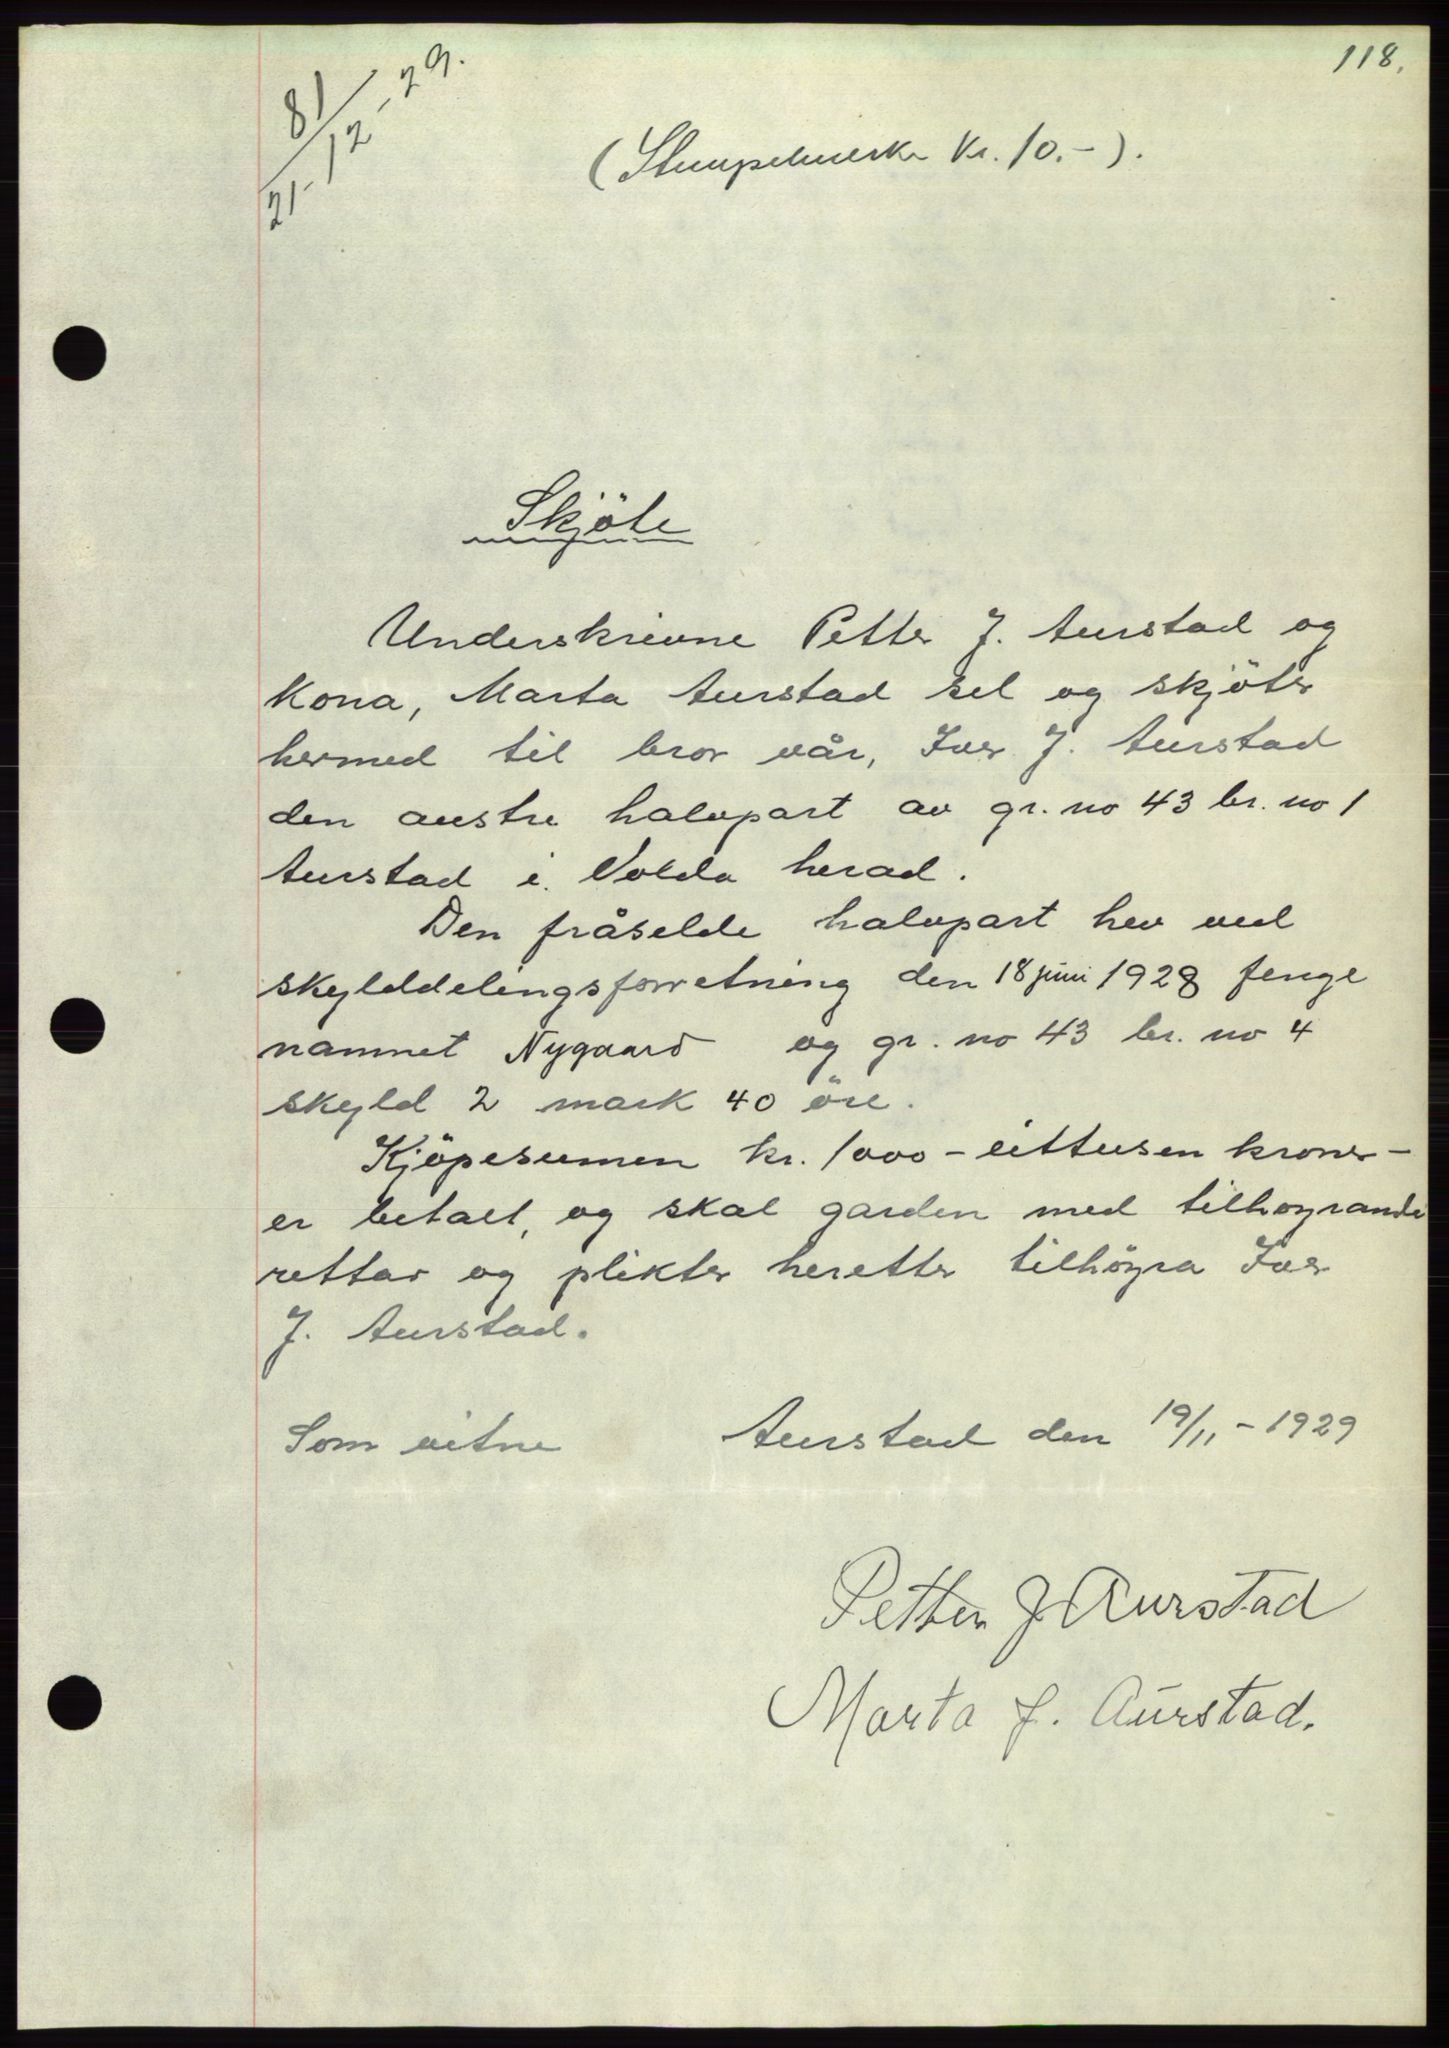 118.
81
21-12-29.
(Stempelmerke Kr. 10.-).
Skjöte
Underskrevne Petter J. Aurstad og
Kona, Marta Aurstad sel og skjöter
hermed til bror vår, Iver J. Aurstad
den austre halvpart av gr. no 43 br. no 1
Aurstad i Volda herad.
Den fråselde halvpart hev ved
skylddelingsforretning den 18 juni 1928 fenge
namnet Nygaard og gr. no 43 br. no 4
skyld 2 mark 40 öre.
Kjöpesumen kr. 1000 - eittusen kroner -
er betalt, og skal garden med tilhoyrande
rettar og plikter heretter tilhöyra Iver
J. Aurstad.
Som vitne Aurstad den 19/11 - 1929
Petter J Aurstad
Marta J. Aurstad.